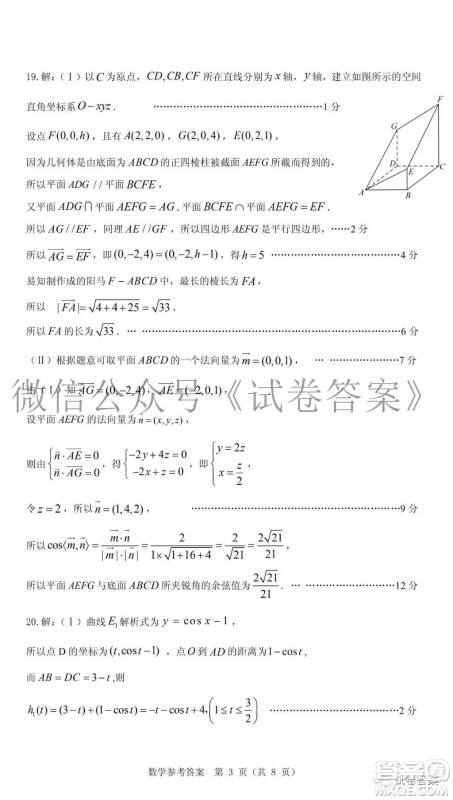 19.解:(Ⅰ)以C为原点,CD,CB,CF所在直线分别为x轴,y轴,建立如图所示的空间
直角坐标系O－xyz. ……………………………………………1分
设点F(0,0,h),且有A(2,2,0),G(2,0,4),E(0,2,1),
因为几何体是由底面为ABCD的正四棱柱被截面AEFG所截而得到的,
所以平面ADG//平面BCFE,
又平面ADG∩平面AEFG=AG,平面BCFE∩平面AEFG=EF.
所以AG//EF,同理AE//GF,所以四边形AEFG是平行四边形,……2分
所以AG=EF,即(0,-2,4)=(0,-2,h-1),得h=5 ……………………4分
易知制作成的阳马F－ABCD中,最长的棱长为FA,
所以 |FA|=√4+4+25=√33,
所以FA的长为√33. ……………………………………………6分
(Ⅱ)根据题意可取平面ABCD的一个法向量为m=(0,0,1), ……………7分
由(Ⅰ)知AG=(0,-2,4),AE=(-2,0,1),
设平面AEFG的法向量为n=(x,y,z),
则由{n·AE=0 n·AG=0,得{-2y+4z=0 -2x+z=0,即{y=2z x=z/2
令z=2,所以n=(1,4,2), ……………………………………9分
所以cos⟨m,n⟩=m·n/|m|·|n|=2/1×√1+16+4=2/√21=2√21/21,
所以平面AEFG与底面ABCD所夹锐角的余弦值为2√21/21. ……………12分
20.解:(Ⅰ)曲线E₁解析式为y=cos x-1,
所以点D的坐标为(t,cost-1),点O到AD的距离为1-cost,
而AB=DC=3-t,则
h₁(t)=(3-t)+(1-cost)=-t-cost+4,(1≤t≤3/2) ……………………2分
数学参考答案 第 3 页(共 8 页)
F
G
D
C
E
A
B
微信公众号《试卷答案》
试卷答案